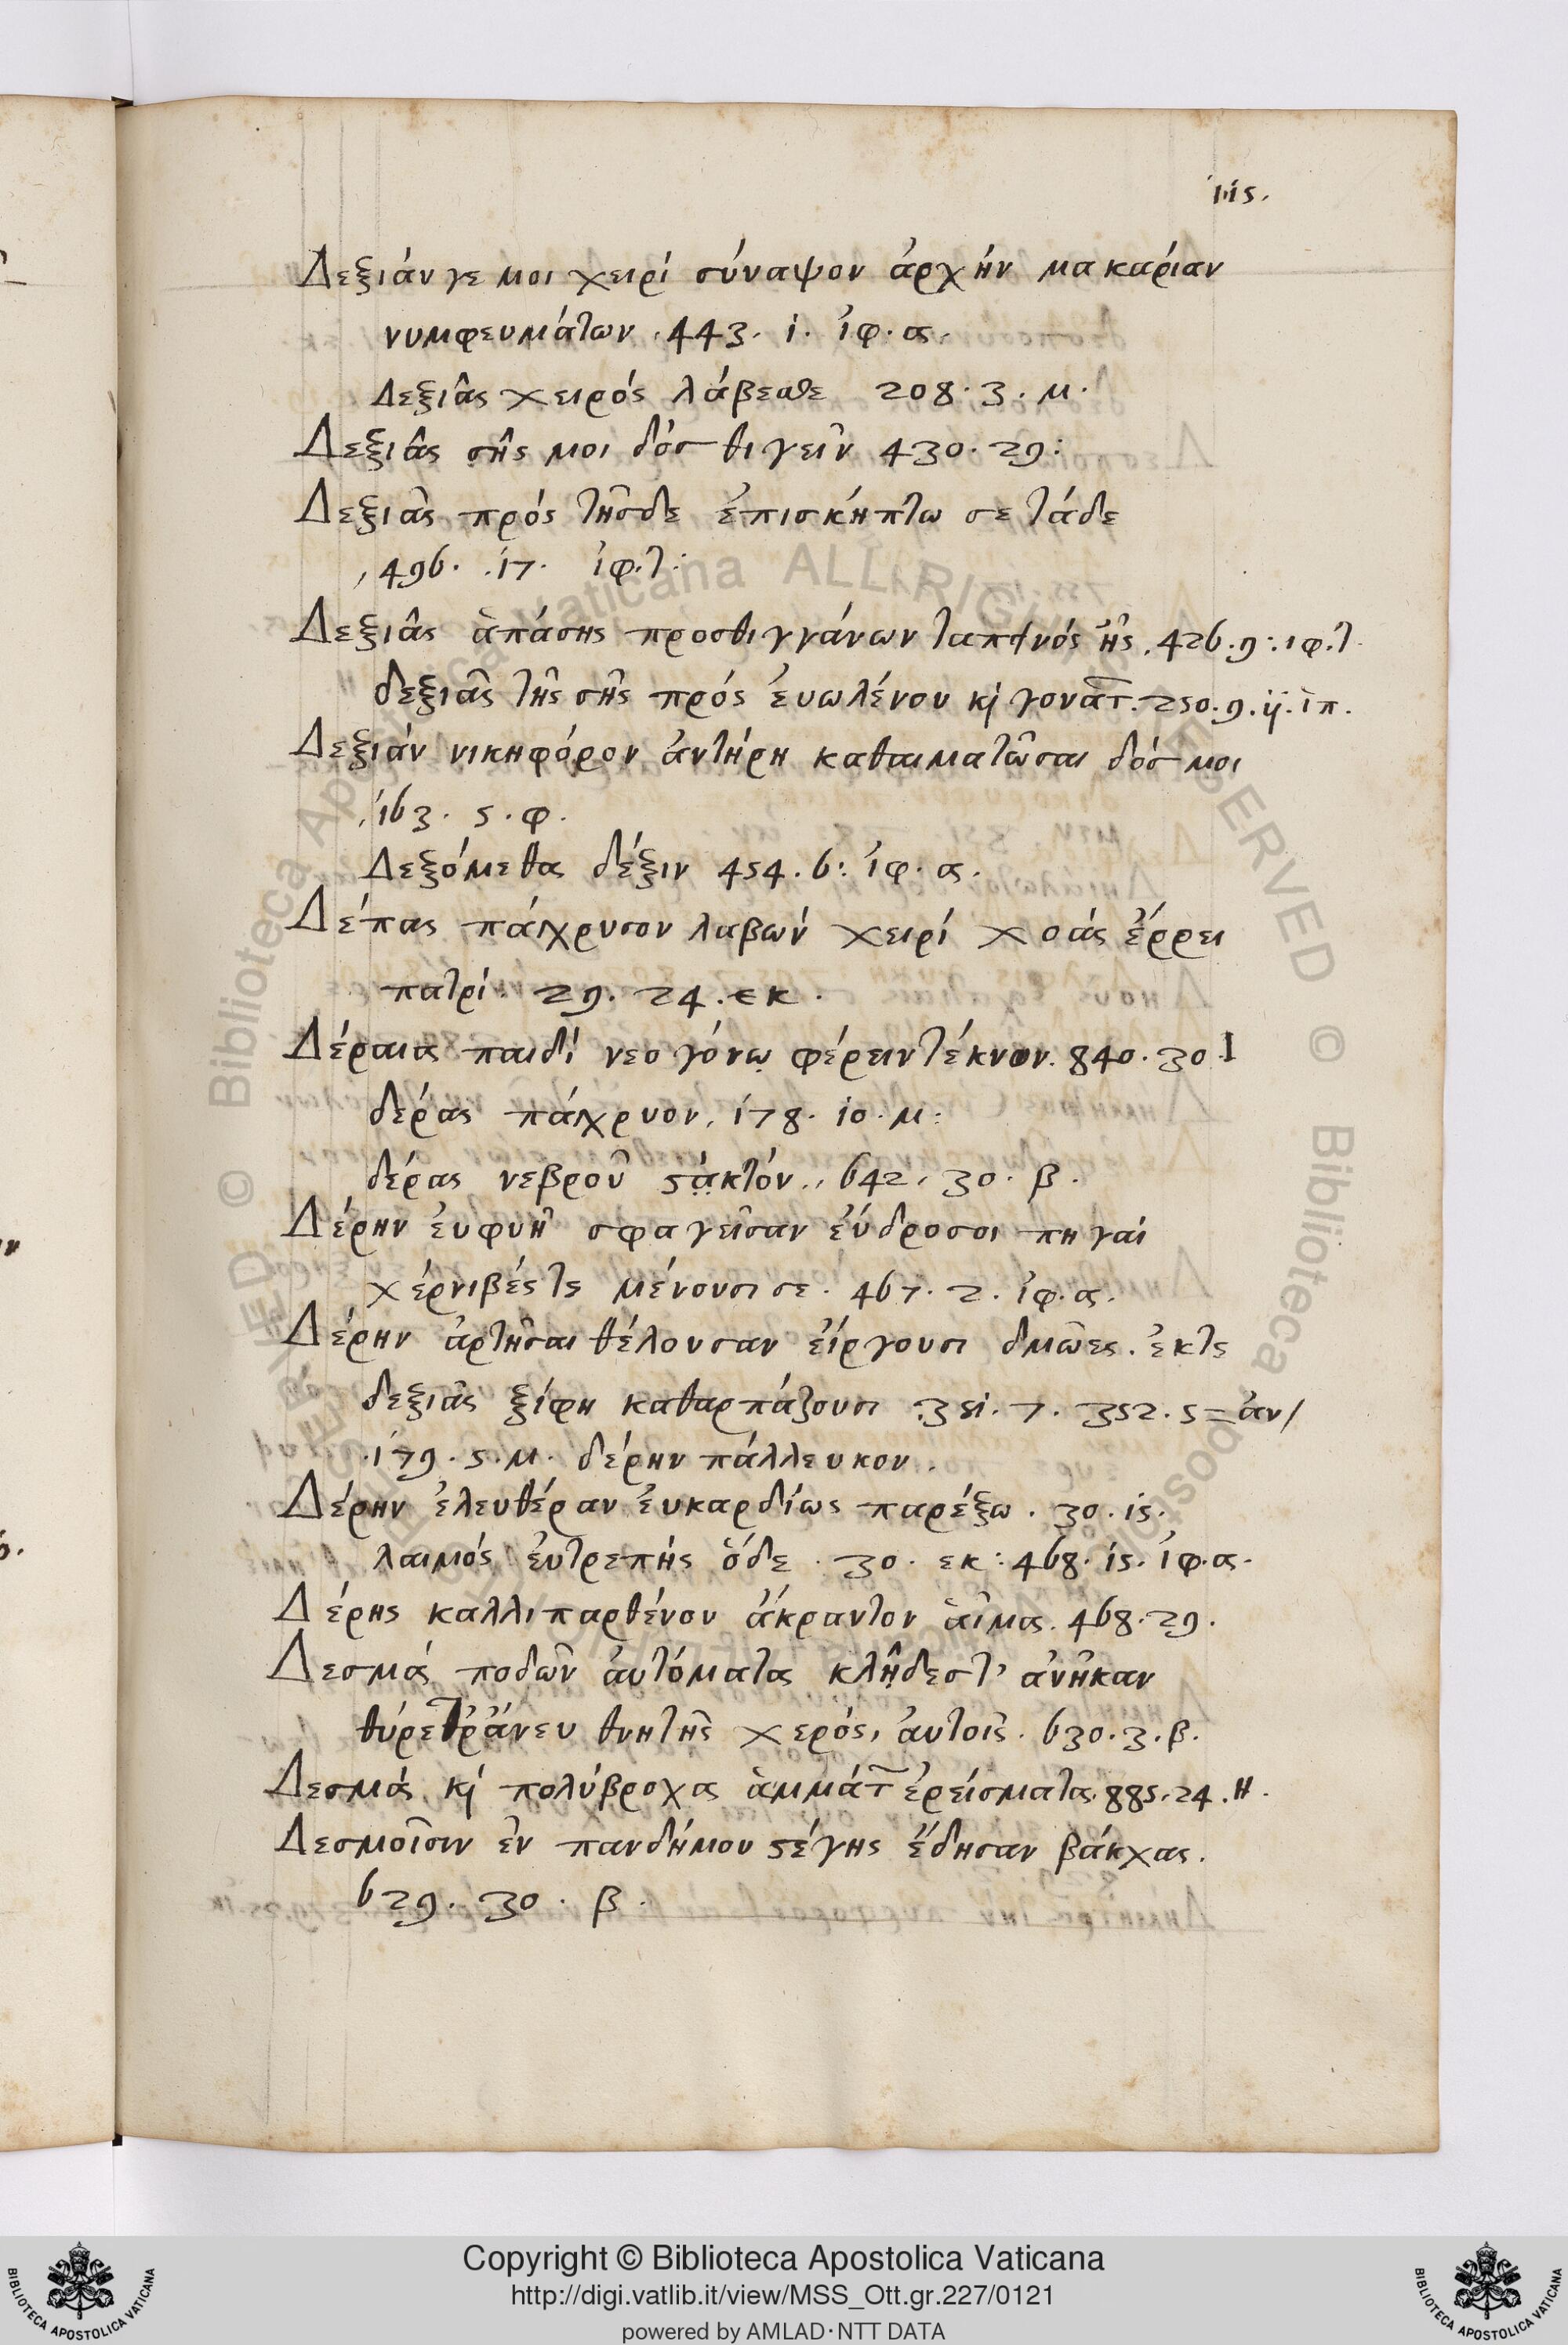 115.
Δεξιάν γε μοι χειρί σύναψον ἀρχήν μακαρίαν
νυμφευμάτων .443. 1. ἰφ. α.
Δεξιᾶς χειρός λάβεσθε 208. 3. μ.
Δεξιᾶς σῆς μοι δός θιγεῖν 430. 29:
Δεξιᾶς πρός τῆσδε ἐπισκήπτω σε τάδε
, 496. .17. ἰφ. τ:
Δεξιᾶς ἁπάσης προσθιγγάνων ταπεινός ἦς. 426. 9:. ιφ. τ.
δεξιᾶς τῆς σῆς πρός εὐωλένου κ γονάτ. 250. 9. ἱπ.
Δεξιάν νικηφόρον ἀντήρη καθαιματῶσαι δός μοι
, 163. 5. φ.
Δεξόμεθα δέξιν 454. 6: ἰφ. α.
Δέπας πάγχρυσον λαβών χειρί χοάς ἔρρει
πατρί. 29. 24. εκ.
Δέραια παιδί νεογόνῳ φέρειν τέκνων. 840. 30. Ι
δέρας πάγχρυον, 178. 10. μ:
δέρας νεβροῦ στακτόν., 642, 30. β.
Δέρην εὐφυῆ σφαγεῖσαν εὔδροσοι πηγαί
χέρνιβές τε μένουσι σε. 467. 2. ἰφ. α.
Δέρην ἀρτῆσαι θέλουσαν εἴργουσι δμῶες. ἐκ τε
δεξιᾶς ξίφη καθαρπάζουσι .351. 7. 352. 5 = ἀν/
.179. 5. μ. δέρην πάλλευκον.
Δέρην ἐλευθέραν εὐκαρδίως παρέξω. 30. 15.
λαιμός εὐτρεπής ὅδε. 30. εκ: 468. 15. ἰφ. α.
Δέρης καλλιπαρθένου ἄκραντον αἷμα. 468. 29.
Δεσμά ποδῶν αὐτόματα κλῇδες τ' ἀνῆκαν
θύρετρ ἄνευ θνητῆς χερός, αὐτοῖς. 630. 3. β.
Δεσμά κ πολύβροχα ἁμμάτ ἐρείσματα. 885. 24. Η.
Δεσμοῖσιν ἐν πανδήμου στέγης ἔδησαν βάκχας.
629. 30. β.
© Biblioteca Apostolica Vaticana ALL RIGHTS RESERVED
Copyright © Biblioteca Apostolica Vaticana
http://digi.vatlib.it/view/MSS_Ott.gr.227/0121
powered by AMLAD·NTT DATA
BIBLIOTECA APOSTOLICA VATICANA
BIBLIOTECA APOSTOLICA VATICANA